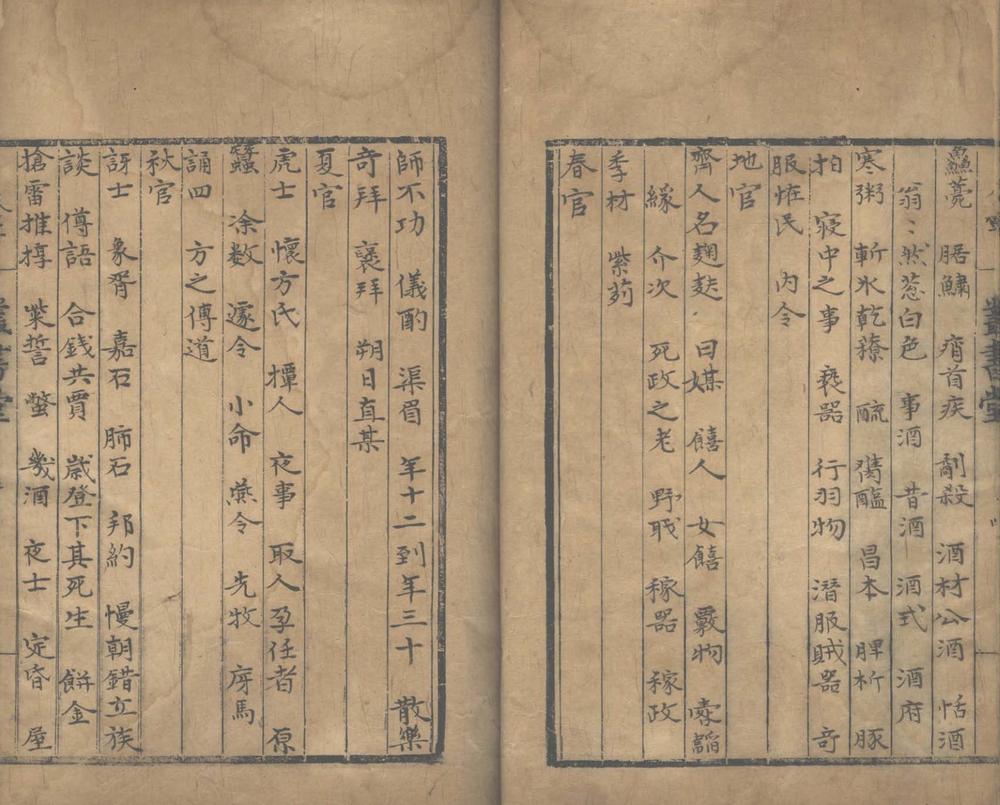 鱻薧 腒鱐 痟首疾 劀殺 酒材公酒 恬酒
翁〻然葱白色 事酒 昔酒 酒式 酒府
寒粥 斬氷乾䕩 酏 醓醢 昌本 脾析 豚
拍 寢中之事 䙝器 行羽物 潛服賊器 奇
服怪民 内令
地官
齊人名麹䴷曰媒 饎人 女饎 覈物 宩謟
緣 介次 死政之老 野職 稼器 稼政
季材 紫茢
春官
師不功 儀酌 渠眉 年十二到年三十 散樂
奇拜 襃拜 朔日直某
夏官
虎士 懷方氏 撢人 夜事 取人孕任者 原
蠶 凃数 遽令 小命 燕令 先牧 房馬
誦四方之傅道
秋官
訝士 象胥 嘉石 肺石 邦約 慢朝錯立族
談 傳語 合錢共賈 歲登下其死生 餅金
搶雷推椁 誓 幾酒 夜士 定昏 屋
叢書堂